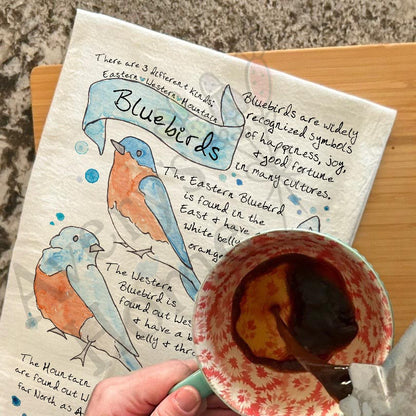 There are 3 different kinds;
Eastern Western Mountain
Bluebirds
Bluebirds are widely
recognized symbols
of happiness, joy,
+ good fortune
in many cultures.
The Eastern Bluebird
is found in the
East & have
white belly
orange
The Western
Bluebird is
found out Wes
& have a b
belly & thr
The Mountain
are found out W
far North as A